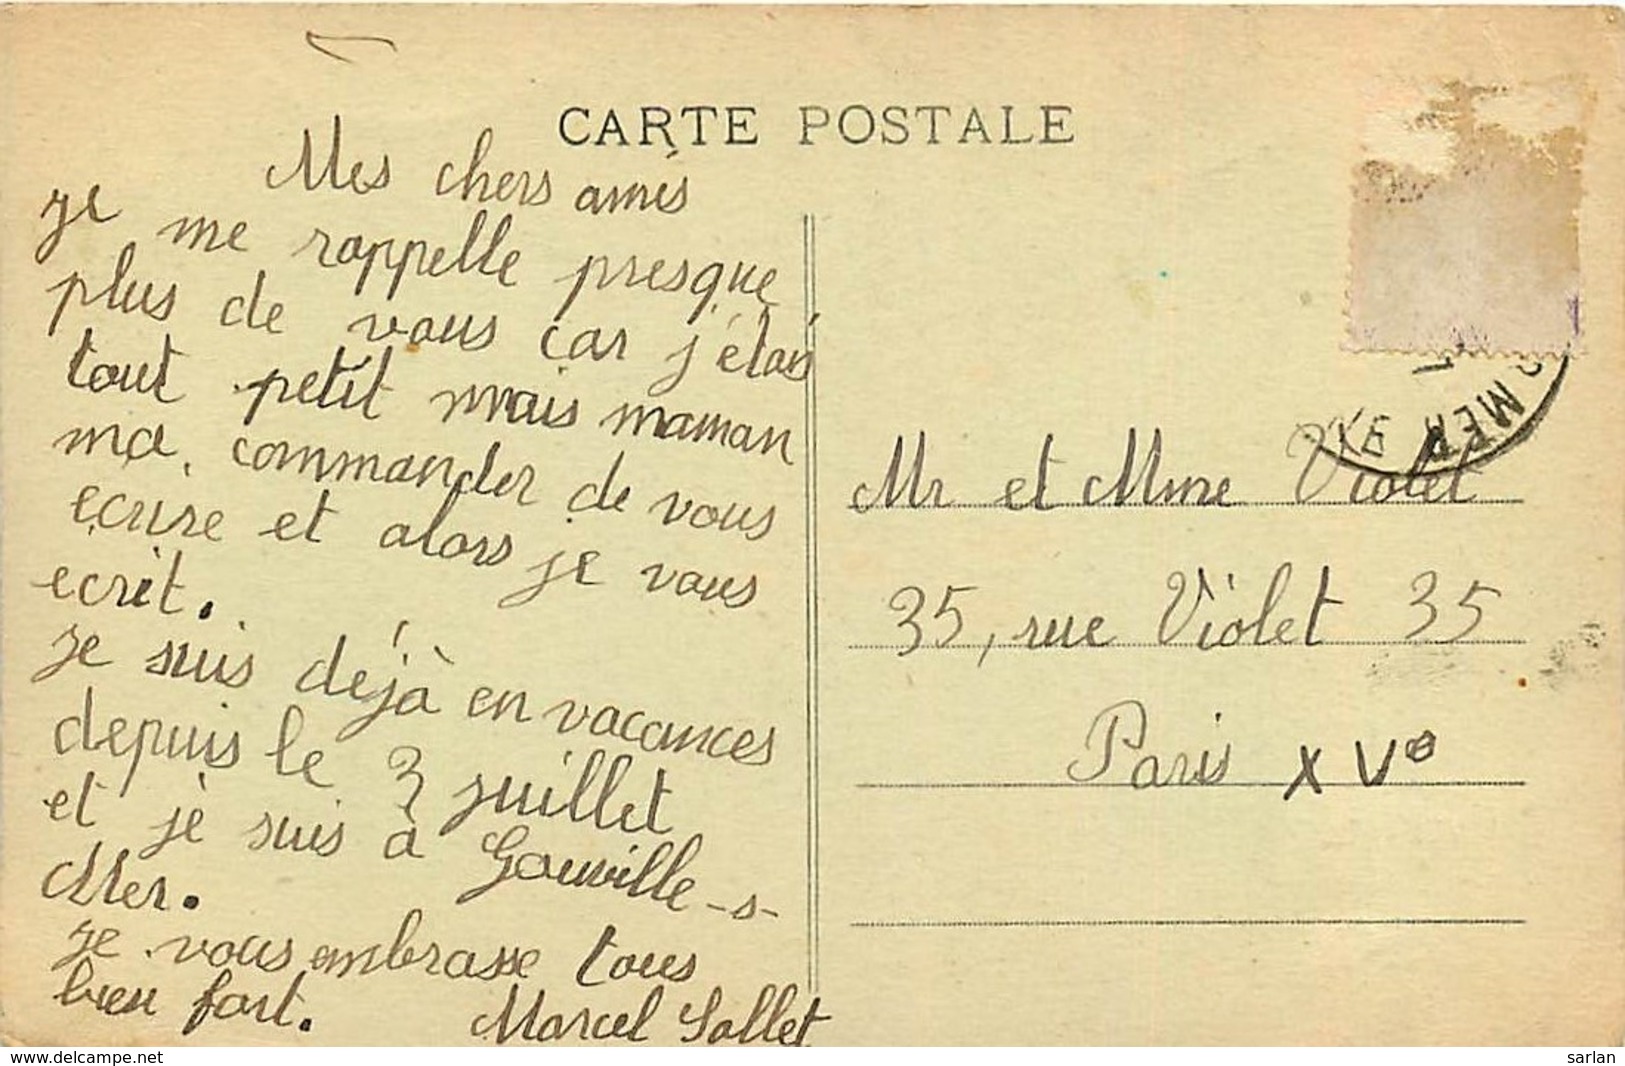 CARTE POSTALE
Mes chers amis
je me rappelle presque
plus de vous car j'étais
tout petit mais maman
ma commander de vous
ecrire et alors je vous
ecrit.
je suis déjà en vacances
depuis le 3 juillet
et je suis a Gouville-s-
Mer.
je vous embrasse tous
bien fort. Marcel Sallet
MER
Mr et Mme Violet
35, rue Violet 35
Paris XVe
www.delcampe.net
sarlan